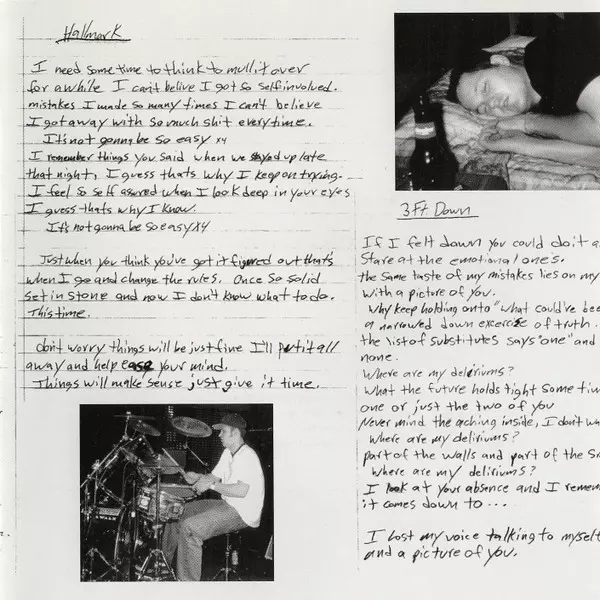 Hallmark
I need some time to think to mull it over
for awhile I can't belive I got so selfinvolved.
mistakes I made so many times I can't believe
I got away with so much shit everytime.
It's not gonna be so easy x4
I remember things you said when we stayed up late
that night, I guess thats why I keep on trying.
I feel so self assured when I look deep in your eyes
I guess thats why I know.
It's not gonna be so easy x4
Just when you think you've got it figured out that's
when I go and change the rules. Once so solid
set in stone and now I don't know what to do.
This time.
don't worry things will be just fine I'll put it all
away and help ease your mind.
Things will make sense just give it time.
3 Ft. Down
If I felt down you could do it a
Stare at the emotional one's.
the same taste of my mistakes lies on my
with a picture of you.
Why keep holding onto "what could've bee
a narrowed down excercise of truth.
the list of substitutes says "one" and
none.
Where are my deliriums?
What the future holds tight some tim
one or just the two of you
Never mind the aching inside, I don't w
Where are my deliriums?
part of the walls and part of the
Where are my deliriums?
I look at your absence and I remem
it comes down to...
I lost my voice talking to myself
and a picture of you.